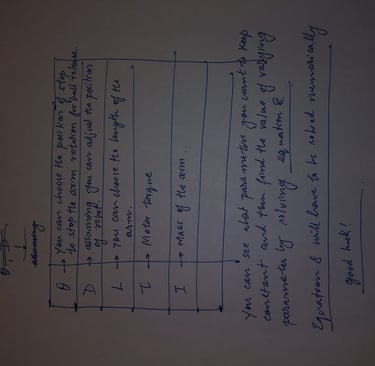 θ, D
↓
assuming
θ → You can choose the position of stop
to stop the arm rotation for ball release.
D → assuming you can adjust the position
of robot.
L → You can choose the length of the
arm.
τ → Motor torque
I → Mass of the arm.
You can see what parameters you want to keep
constant and then find the value of varying
parameter by solving equation 8
Equation 8 will have to be solved numerically
good luck!